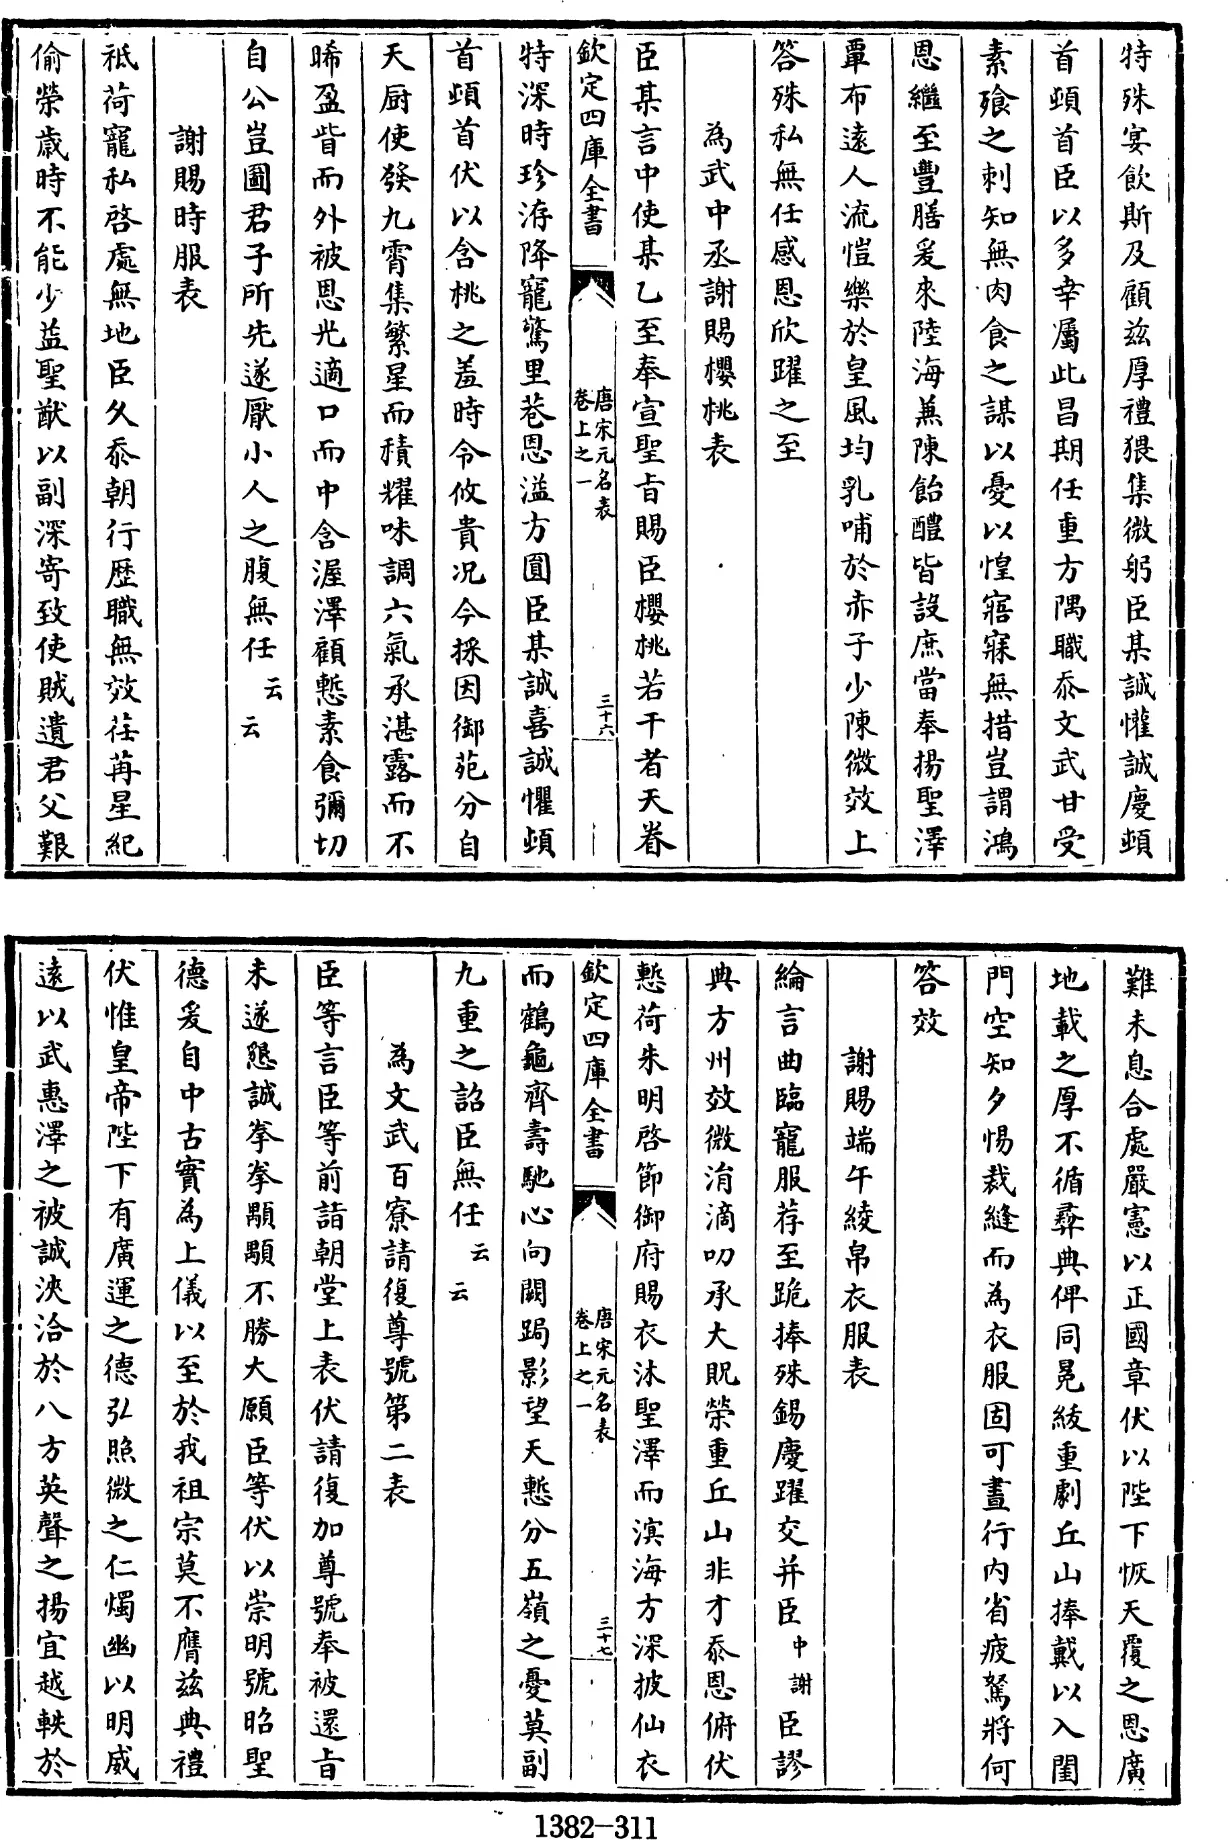 特殊宴飲斯及顧兹厚禮猥集微躬臣某誠懽誠慶頓
首頓首臣以多幸屬此昌期任重方隅職忝文武甘受
素飱之刺知無肉食之謀以憂以惶寤寐無措豈謂鴻
恩繼至豐膳爰來陸海兼陳飴醴皆設庶當奉揚聖澤
覃布遠人流愷樂於皇風均乳哺於赤子少陳微效上
答殊私無任感恩欣躍之至
為武中丞謝賜櫻桃表
臣某言中使某乙至奉宣聖㫖賜臣櫻桃若干者天眷
欽定四庫全書
唐宋元名表
卷上之一
三十六
特深時珍洊降寵驚里巷恩溢方圓臣某誠喜誠懼頓
首頓首伏以含桃之羞時令攸貴况今採因御苑分自
天厨使發九霄集繁星而積耀味調六氣承湛露而不
晞盈眥而外被恩光適口而中含渥澤顧慙素食彌切
自公豈圖君子所先遂厭小人之腹無任云云
謝賜時服表
祗荷寵私啓處無地臣久忝朝行歴職無效荏苒星紀
偷榮歲時不能少益聖猷以副深寄致使賊遺君父艱
難未息合處嚴憲以正國章伏以陛下恢天覆之恩廣
地載之厚不循彛典俾同冕綾重劇丘山捧戴以入閨
門空知夕惕裁縫而為衣服固可晝行内省疲駑將何
答效
謝賜端午綾帛衣服表
綸言曲臨寵服荐至跪捧殊錫慶躍交并臣中謝臣謬
典方州效微涓滴叨承大貺榮重丘山非才忝恩俯伏
慙荷朱明啓節御府賜衣沐聖澤而溟海方深披仙衣
欽定四庫全書
唐宋元名表
卷上之一
三十七
而鶴龜齊壽馳心向闕跼影望天慙分五嶺之憂莫副
九重之詔臣無任云云
為文武百寮請復尊號第二表
臣等言臣等前詣朝堂上表伏請復加尊號奉被還㫖
未遂懇誠拳拳顒顒不勝大願臣等伏以崇明號昭聖
德爰自中古實為上儀以至於我祖宗莫不膺兹典禮
伏惟皇帝陛下有廣運之德弘照微之仁燭幽以明威
遠以武惠澤之被誠浹洽於八方英聲之揚宜越軼於
1382-311